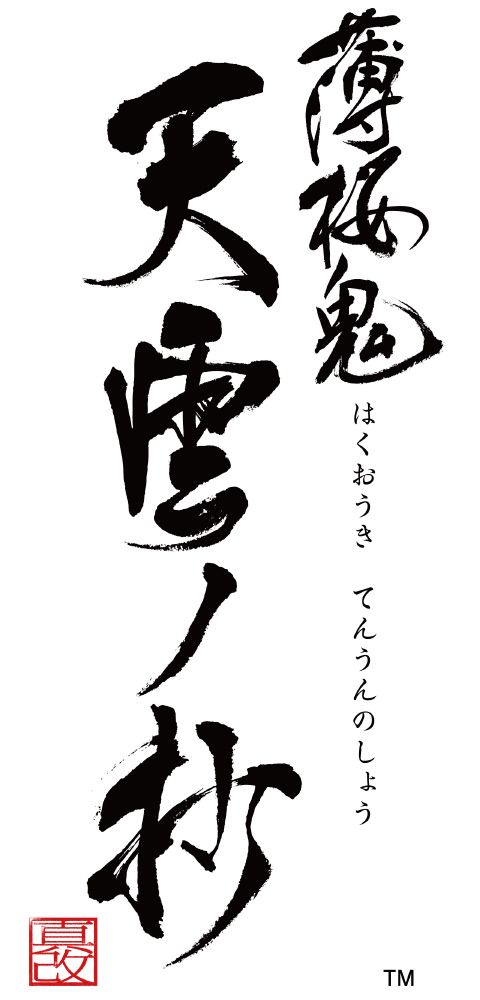 薄桜鬼
はくおうき　てんうんのしょう
天雲ノ抄
真改
TM